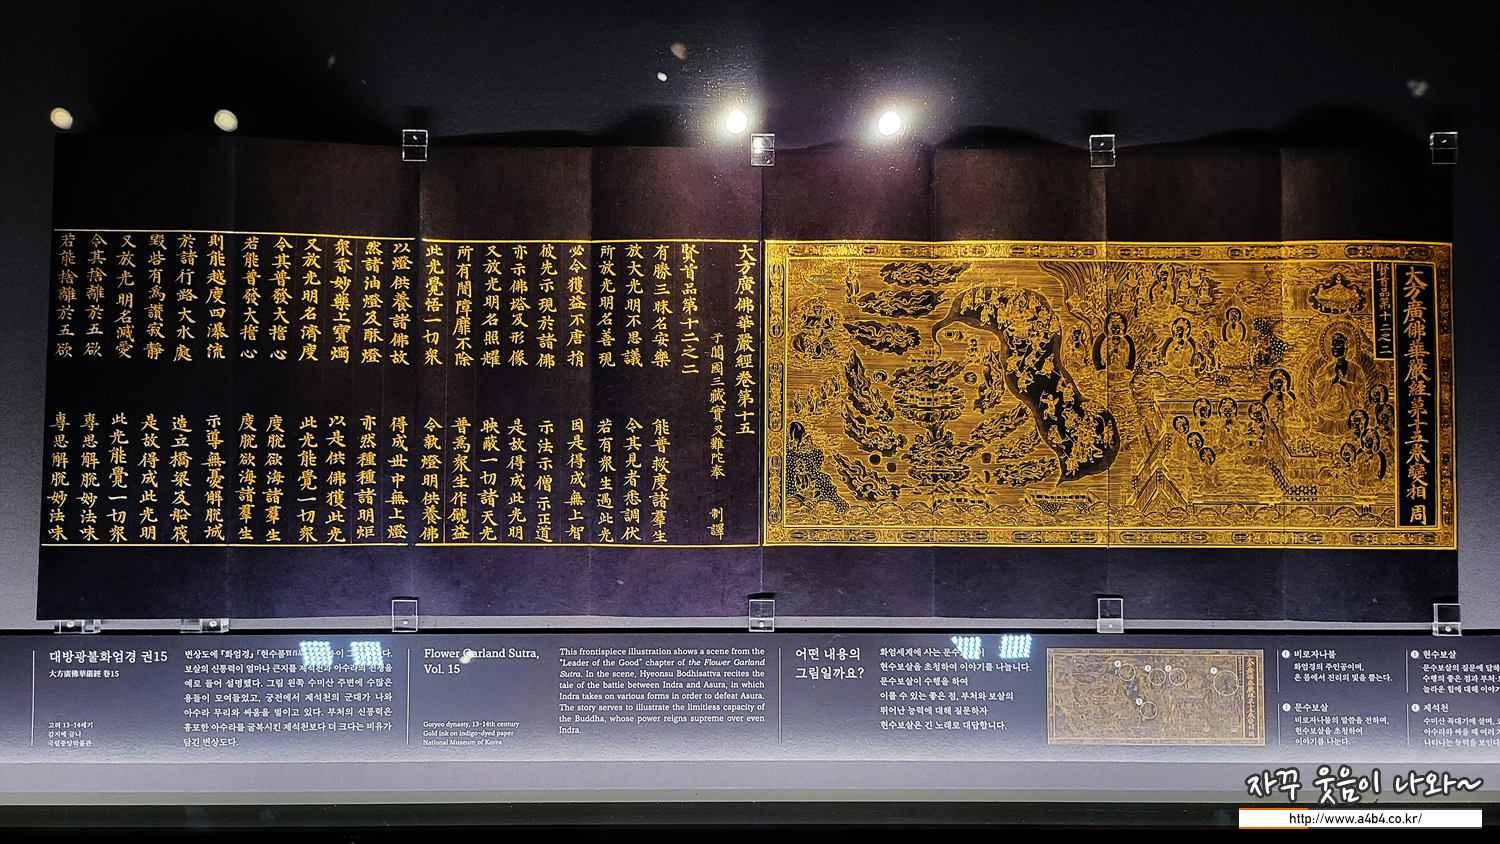 大方廣佛華嚴經第十五卷變相 周
賢首品第十二之二
大方廣佛華嚴經卷第十五
于闐國三藏實叉難陀奉 制譯
賢首品第十二之二
有勝三昧名安樂 能普救度諸羣生
放大光明不思議 令其見者悉調伏
所放光明名善現 若有衆生遇此光
必令獲益不唐捐 因是得成無上智
彼先示現於諸佛 示法示僧示正道
亦示佛塔及形像 是故得成此光明
又放光明名照耀 映蔽一切諸天光
所有闇障靡不除 普爲衆生作饒益
此光覺悟一切衆 令執燈明供養佛
以燈供養諸佛故 得成世中無上燈
然諸油燈及酥燈 亦然種種諸明炬
衆香妙藥上寶燭 以是供佛獲此光
又放光明名濟度 此光能覺一切衆
令其普發大誓心 度脫欲海諸羣生
若能普發大誓心 度脫欲海諸羣生
則能越度四瀑流 示導無憂解脫城
於諸行路大水處 造立橋梁及船筏
毀呰有爲讚寂靜 是故得成此光明
又放光明名滅愛 此光能覺一切衆
令其捨離於五欲 專思解脫妙法味
若能捨離於五欲 專思解脫妙法味
대방광불화엄경 권15
大方廣佛華嚴經 卷15
고려 13-14세기
감지에 금니
국립중앙박물관
변상도에 『화엄경』 「현수품
보살의 신통력이 얼마나 큰지를 제석천과 아수라의 전쟁을
예로 들어 설명했다. 그림 왼쪽 수미산 주변에 수많은
용들이 모여들었고, 궁전에서 제석천의 군대가 나와
아수라 무리와 싸움을 벌이고 있다. 부처의 신통력은
흉포한 아수라를 굴복시킨 제석천보다 더 크다는 비유가
담긴 변상도다.
Flower Garland Sutra,
Vol. 15
Goryeo dynasty, 13-14th century
Gold ink on indigo-dyed paper
National Museum of Korea
This frontispiece illustration shows a scene from the
"Leader of the Good" chapter of the Flower Garland
Sutra. In the scene, Hyeonsu Bodhisattva recites the
tale of the battle between Indra and Asura, in which
Indra takes on various forms in order to defeat Asura.
The story serves to illustrate the limitless capacity of
the Buddha, whose power reigns supreme over even
Indra.
어떤 내용의
그림일까요?
화엄세계에 사는
현수보살을 초청하여 이야기를 나눕니다.
문수보살이 수행을 하여
이룰 수 있는 좋은 점, 부처와 보살의
뛰어난 능력에 대해 질문하자
현수보살은 긴 노래로 대답합니다.
1 비로자나불
화엄경의 주인공이며,
온 몸에서 진리의 빛을 뿜는다.
2 문수보살
비로자나불의 말씀을 전하며,
현수보살을 초청하여
이야기를 나눈다.
현수보살
문수보살의 질문에 답하
수행의 좋은 점과 부처·보
놀라운 힘에 대해 이야기
제석천
수미산 꼭대기에 살며,
아수라와 싸울 때 여러
나타나는 능력을 보인다
자꾸 웃음이 나와~
http://www.a4b4.co.kr/